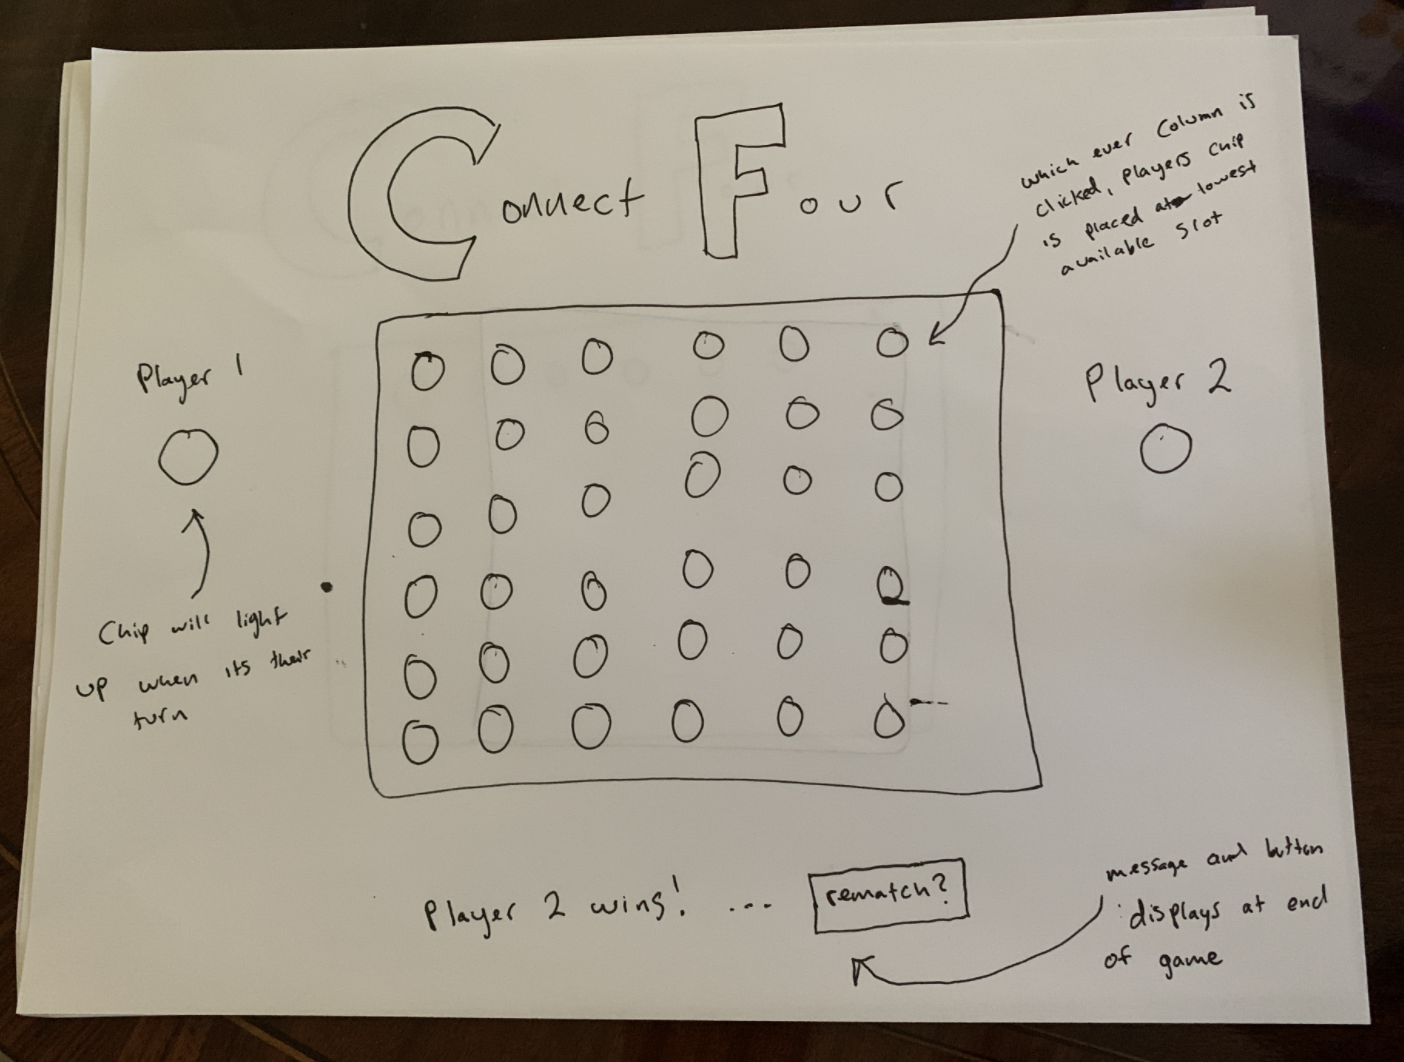 Connect Four
which ever column is
clicked, players chip
is placed at lowest
available slot
Player 1
Player 2
Chip will light
up when its their
turn
Player 2 wins! ...
rematch?
message and button
displays at end
of game